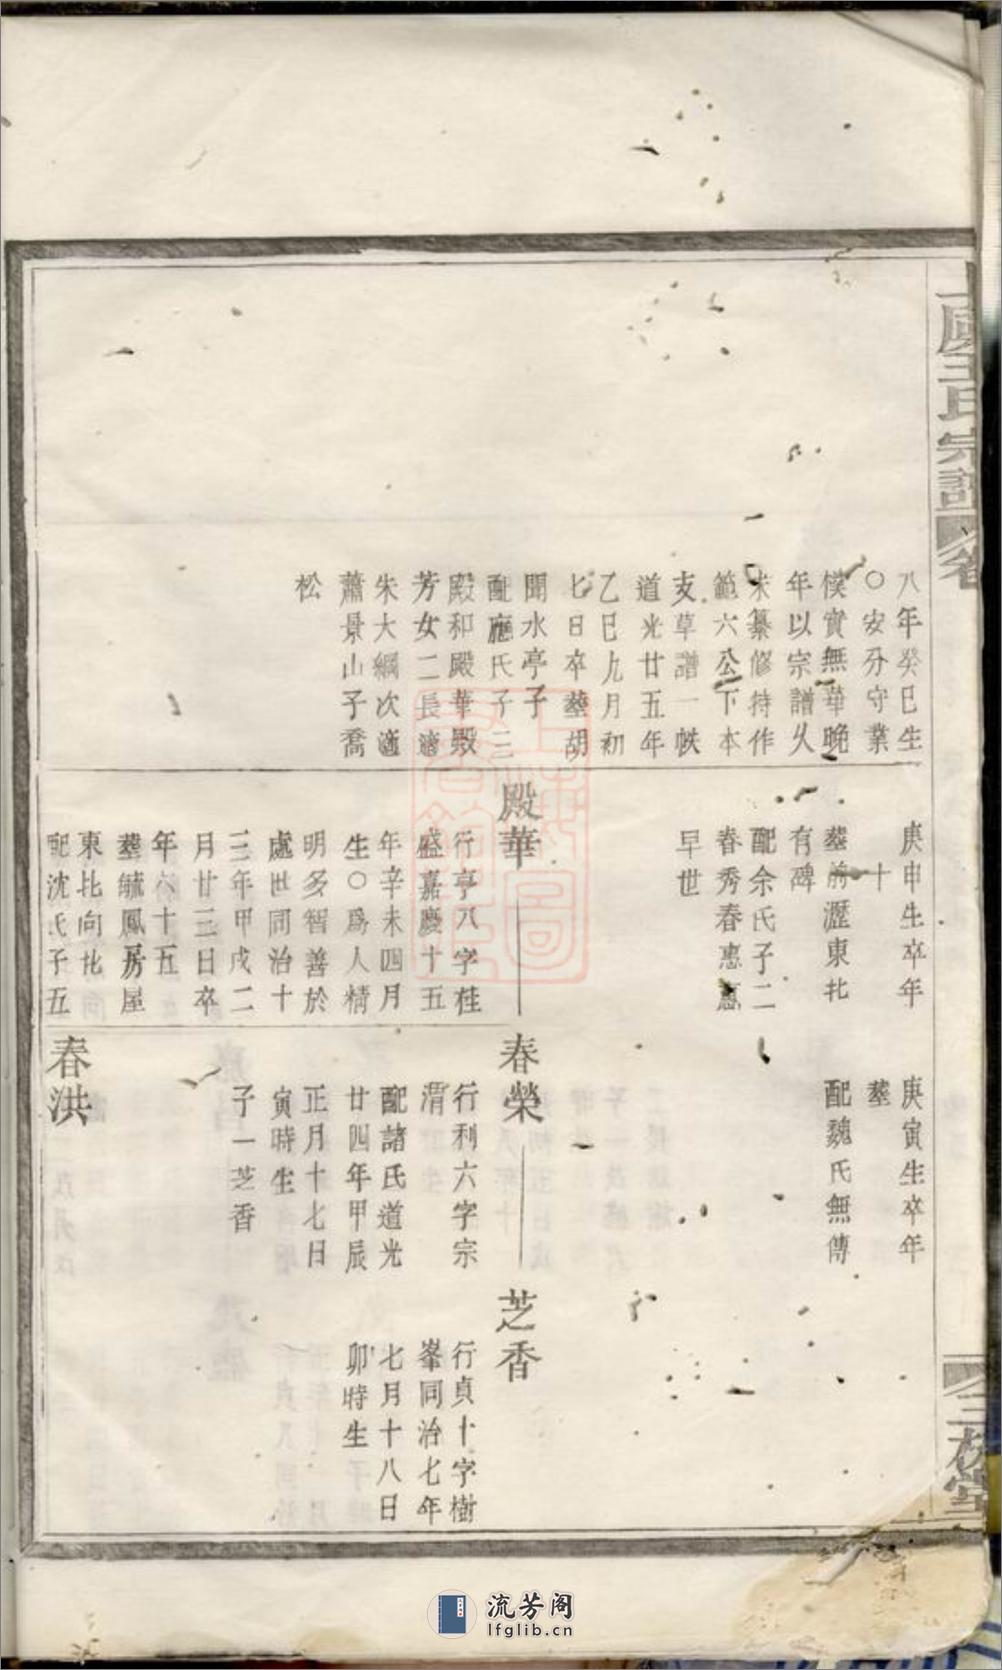 王氏宗譜
卷
三槐堂
八年癸巳生
○安分守業
樸實無華晚
年以宗譜久
未纂修持作
範六公下本
支草譜一帙
道光廿五年
乙巳九月初
七日卒塟胡
聞水亭子
配應氏子三
殿和殿華殿
芳女二長適
朱大綱次適
蕭景山子喬
松
庚申生卒年
十
塟前瀝東北
有碑
配余氏子二
春秀春惠
早世
庚寅生卒年
塟
配魏氏無傳
殿華
行亨八字桂
盛嘉慶十五
年辛未四月
生○爲人精
明多智善於
處世同治十
三年甲戌二
月廿三日卒
年六十五
塟毓鳳房屋
東北向北
配沈氏子五
春榮
行利六字宗
渭
配諸氏道光
廿四年甲辰
正月十七日
寅時生
子一芝香
芝香
行貞十字樹
峯同治七年
七月十八日
卯時生
春洪
上海圖書館藏
流芳阁
lfglib.cn